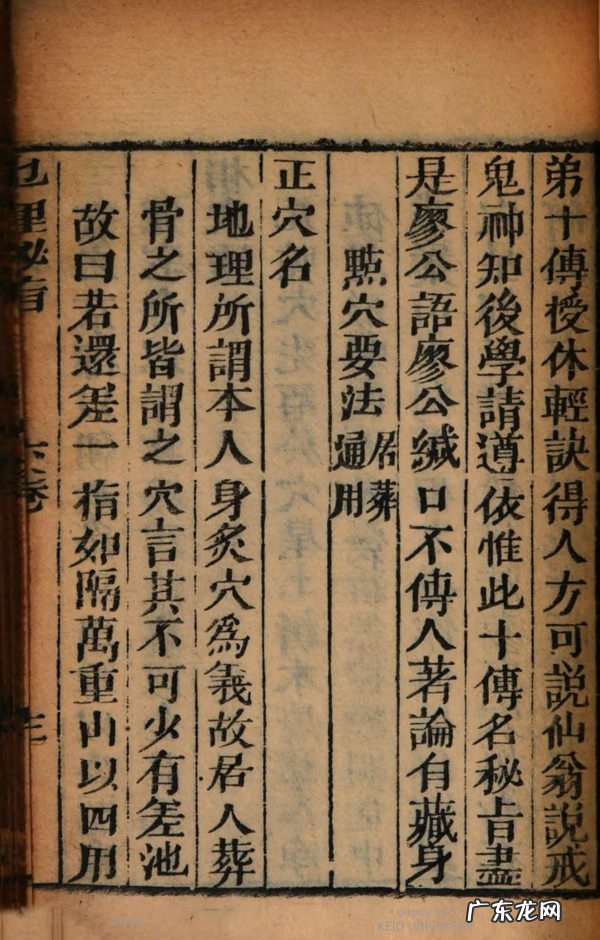 弟十傳授休輕訣得人方可說仙翁說戒
鬼神知後學請遵依惟此十傳名秘旨盡
是廖公語廖公緘口不傳人著論自藏身
點穴要法居葬通用
正穴名
地理所謂本人身炙穴為義故居人葬
骨之所皆謂之穴言其不可少有差池
故曰若還差一指如隔萬重山以四用
地理秘旨 六卷
KEIO UNIVERSITY
广东龙网